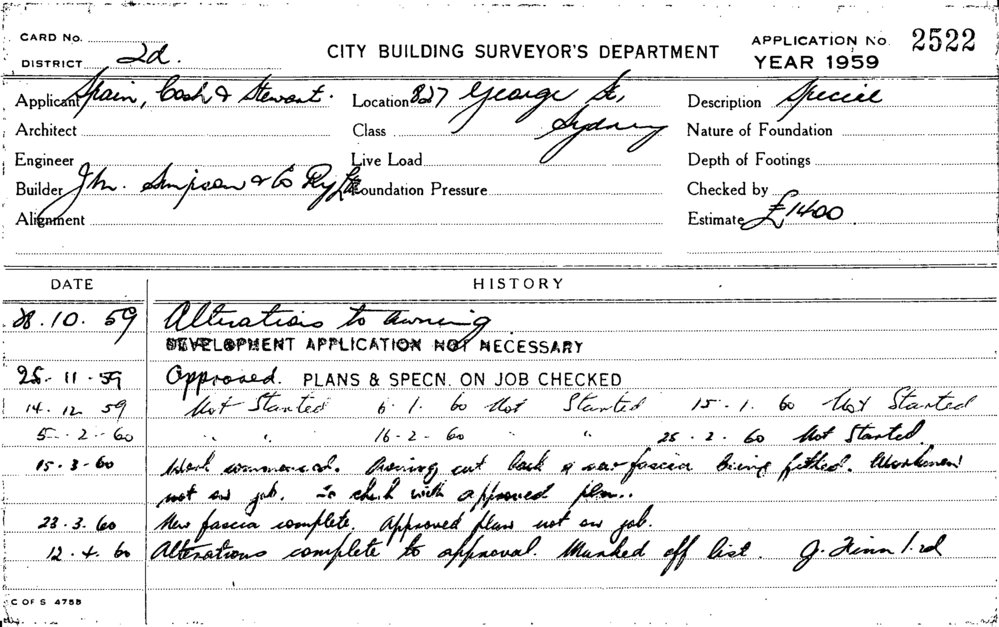 CARD No.
DISTRICT 2d.
CITY BUILDING SURVEYOR'S DEPARTMENT
APPLICATION No. 2522
YEAR 1959
Applicant Spain, Cosh & Stewart. Location 827 George St, Description Special
Architect Class Sydney Nature of Foundation
Engineer Live Load Depth of Footings
Builder Simpson & Co Pty Ltd Foundation Pressure Checked by
Alignment Estimate £1400
DATE HISTORY
28.10.59 Alterations to awning
DEVELOPMENT APPLICATION NOT NECESSARY
25.11.59 Approved. PLANS & SPECN. ON JOB CHECKED
14.12.59 Not Started 6.1.60 Not Started 15.1.60 Not Started
5.2.60 " " 16-2-60 " " 25.2.60 Not Started.
15.3.60 Work commenced. Awning cut back & new fascia being fitted. Workmen
not on job. To check with approved plan..
23.3.60 New fascia complete. Approved plan not on job.
12.4.60 Alterations complete to approval. Marked off list. J. Finn
C OF S 475B